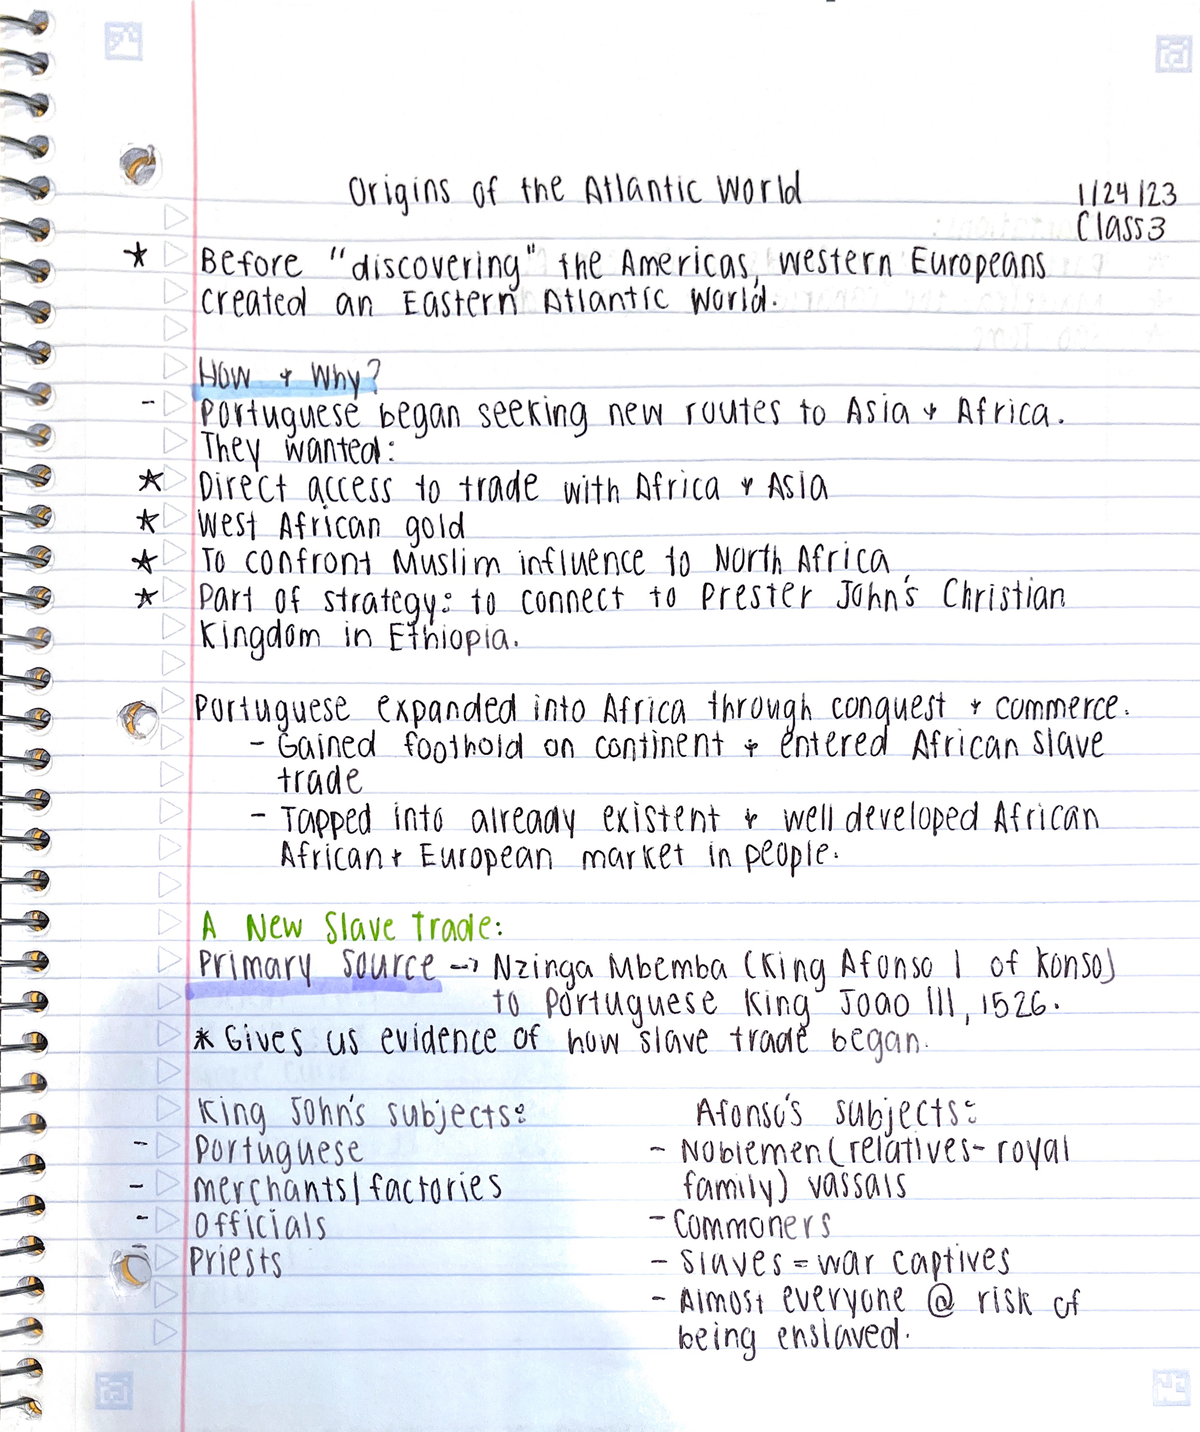 Origins of the Atlantic World
1/24/23
Class 3
* Before "discovering" the Americas, western Europeans
created an Eastern Atlantic World.
How & Why?
- Portuguese began seeking new routes to Asia & Africa.
They wanted:
* Direct access to trade with Africa & Asia
* West African gold
* To confront Muslim influence to North Africa
* Part of strategy: to connect to Prester John's Christian
Kingdom in Ethiopia.
Portuguese expanded into Africa through conquest & commerce.
- Gained foothold on continent & entered African slave
trade
- Tapped into already existent & well developed African
African & European market in people.
A New Slave Trade:
Primary Source → Nzinga Mbemba (King Afonso I of Konso)
to Portuguese King Joao III, 1526.
* Gives us evidence of how slave trade began.
King John's subjects:
- Portuguese
- merchants/factories
- Officials
- Priests
Afonso's subjects:
- Noblemen (relatives - royal
family) vassals
- Commoners
- Slaves = war captives
- Almost everyone @ risk of
being enslaved.